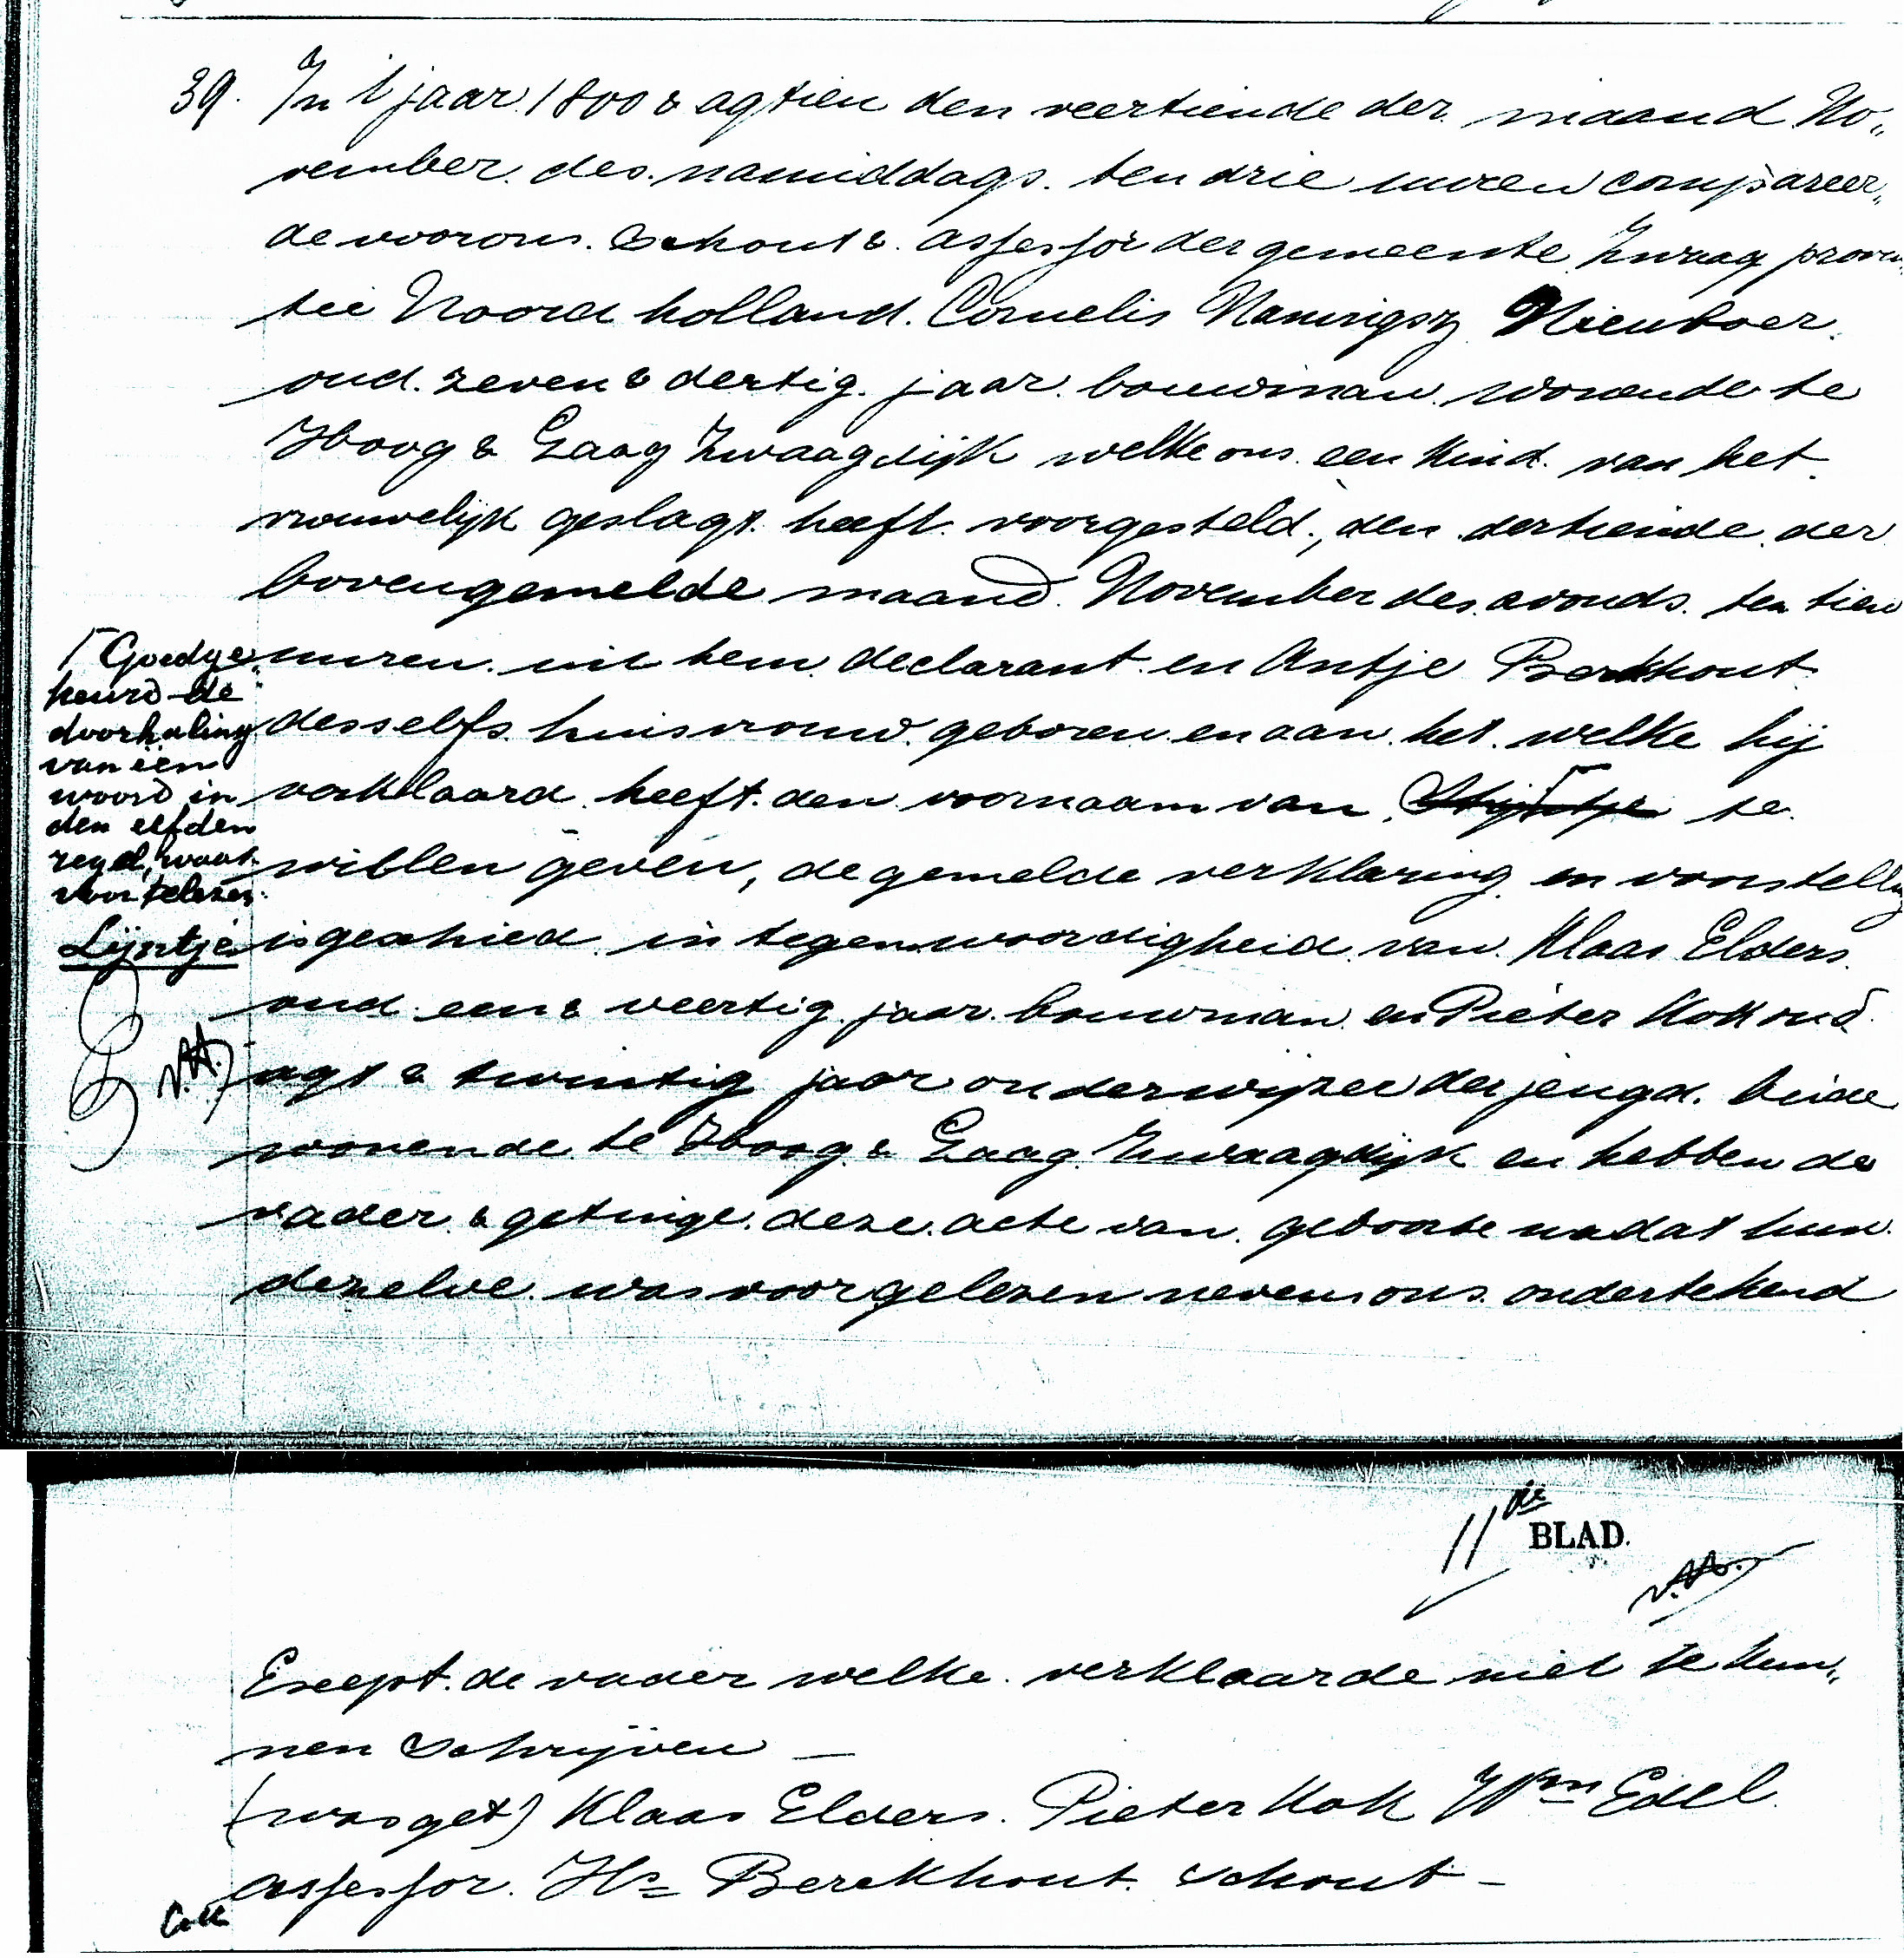 39. In 't jaar 1800 & agtien den veertiende der maand No„
vember des namiddags ten drie uuren compareer„
de voor ons Schout & Assessor der gemeente Zwaag proven
tie Noord holland. Cornelis Naningsz Nieuboer
oud zeven & dertig jaar bouwman wonende te
Hoog & Laag Zwaagdijk welke ons een Kind van het
vrouwelijk geslagt heeft voorgesteld, den dertiende der
bovengemelde maand November des avonds ten tien
uuren uit hem declarant en Antje Berkhout
desselfs huisvrouw geboren en aan het welke hij
verklaard heeft den voornaam van Stijntje te
willen geven, de gemelde verklaring en voorstelling
is geschied in tegenwoordigheid van Klaas Elders
oud een & veertig jaar bouwman en Pieter Kok oud
agt & twintig jaar onderwijzer der jeugd. beide
wonende te Hoog & Laag Zwaagdijk en hebben de
vader & getuige deze acte van geboorte nadat hun
dezelve was voorgelezen nevens ons ondertekend
Goedge„
keurd de
doorhaling
van een
woord in
den elfden
regel, waar
voor te lezen
Lijntje
11de BLAD.
Except de vader welke verklaarde niet te kun„
nen schrijven —
(was get) Klaas Elders. Pieter Kok Wm Edel
assessor. Hs Berckhout schout —
Coll